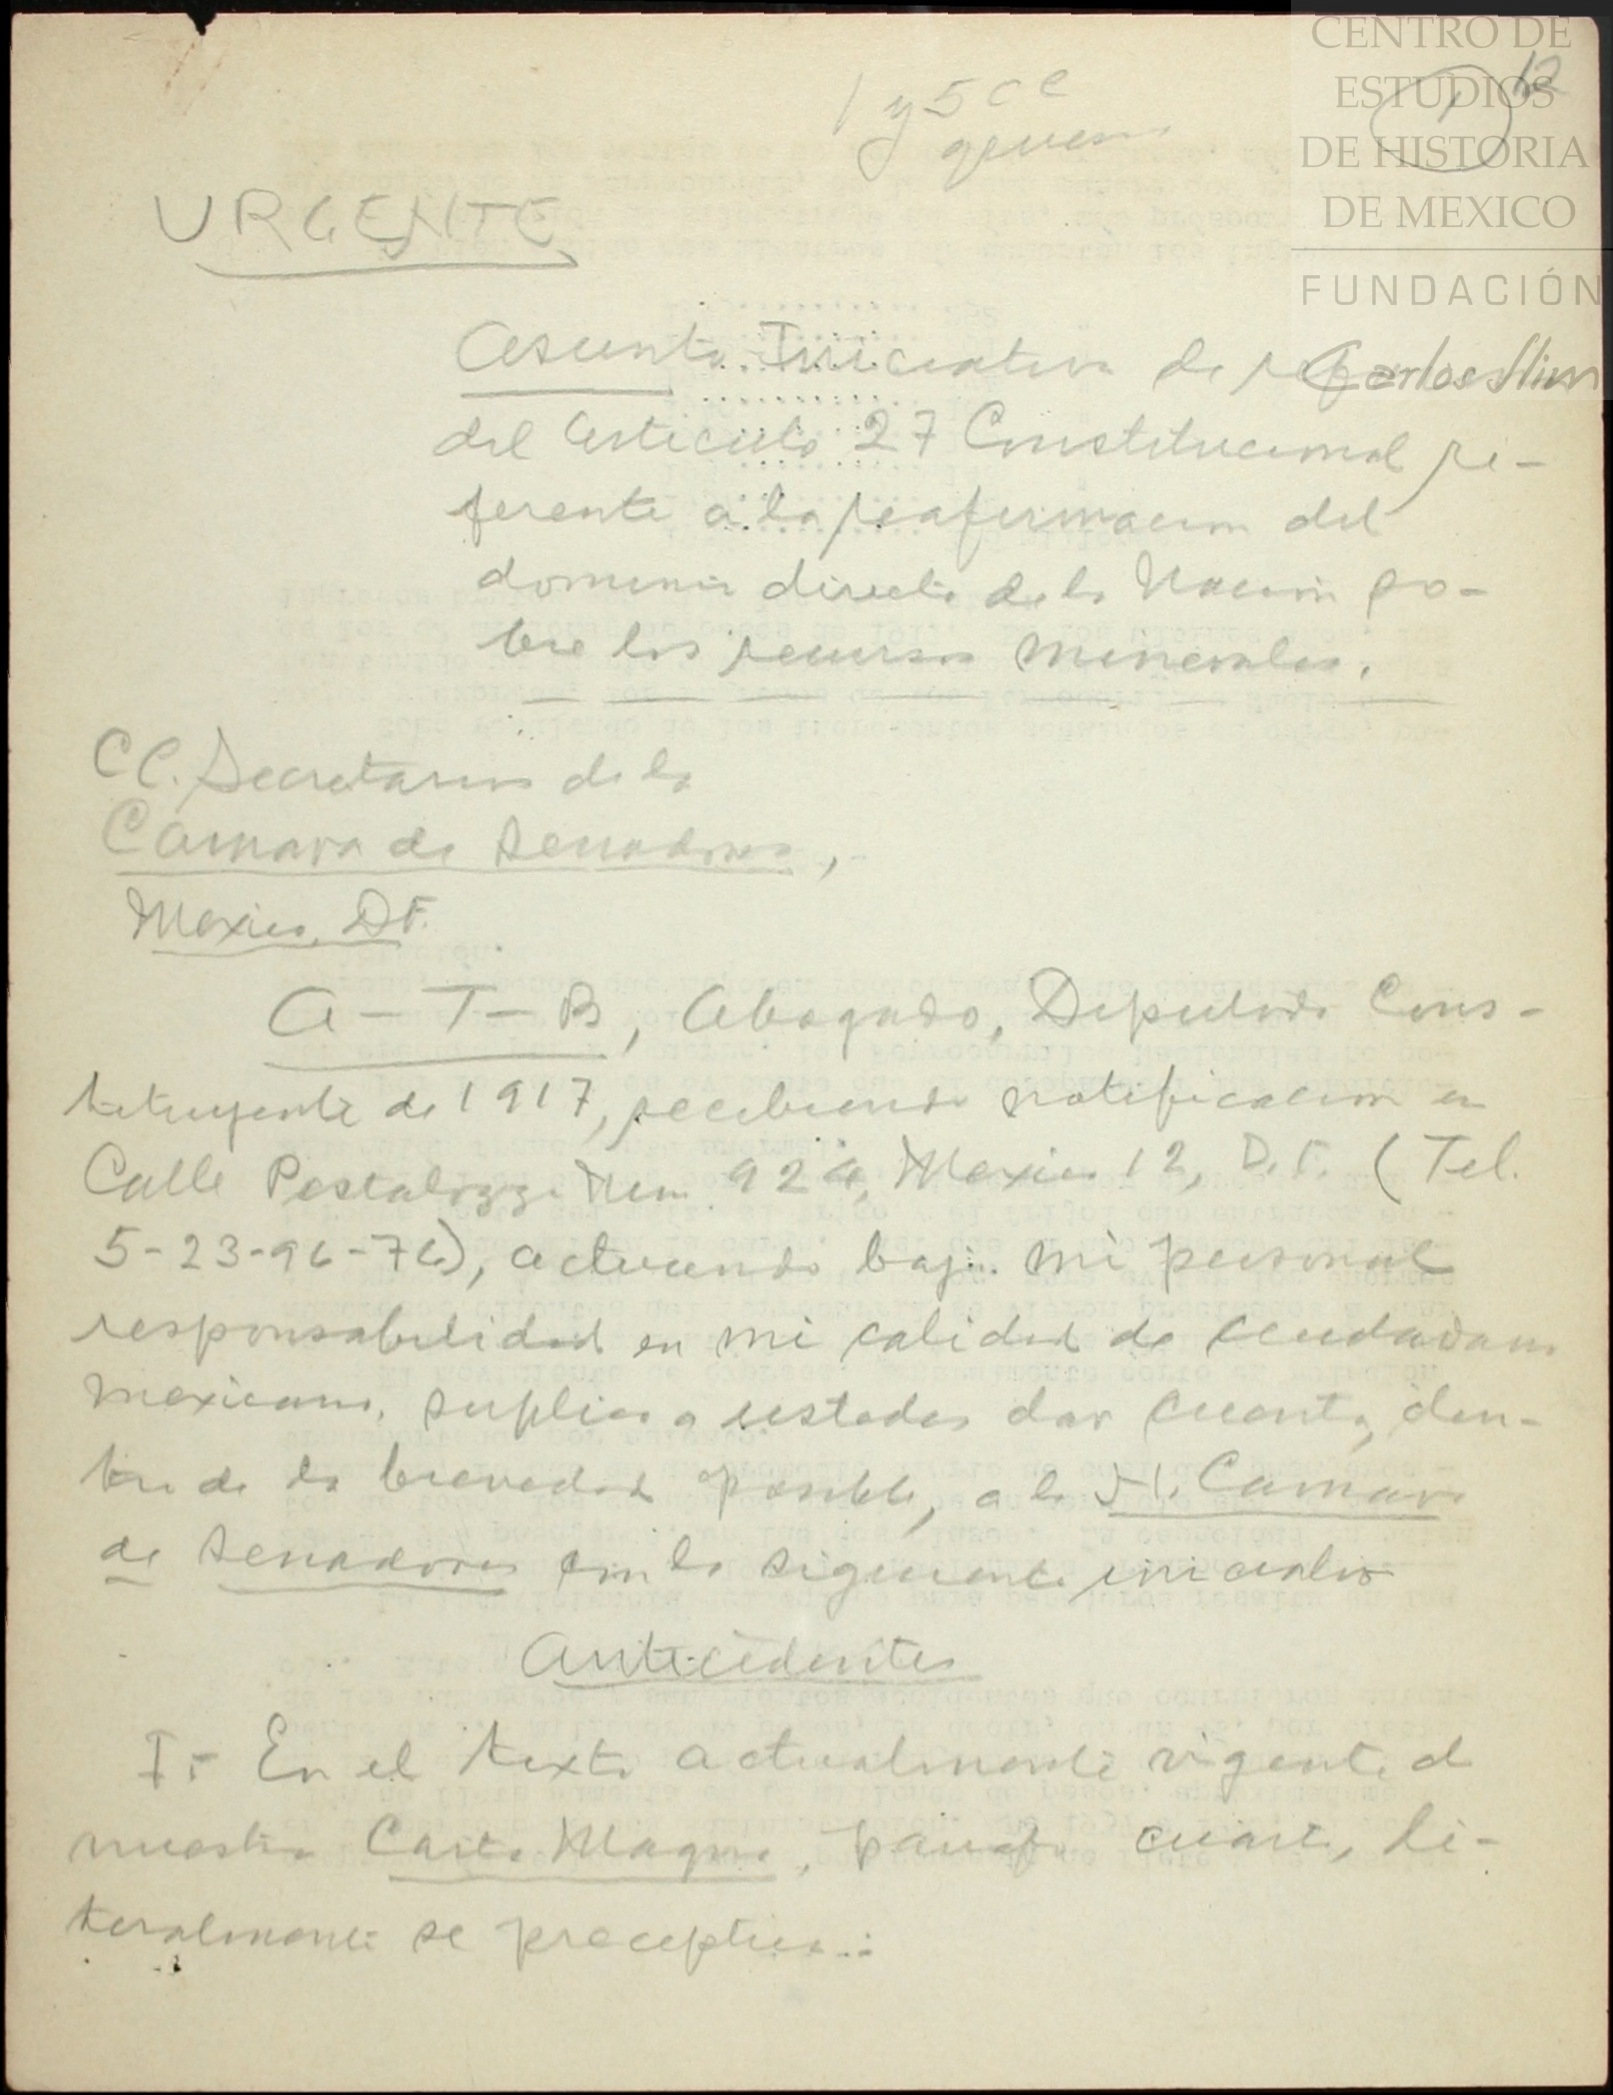 CENTRO DE
ESTUDIOS
DE HISTORIA
DE MEXICO
FUNDACIÓN
Carlos Slim
12
1
1 y 5 cc
URGENTE
Asunto Iniciativa de
del Artículo 27 Constitucional re-
ferente a la reafirmacion del
dominio directo de la Nacion so-
bre los recursos minerales.
CC. Secretarios de la
Camara de Senadores,
Mexico, D.F.
A-T-B, Abogado, Diputado Cons-
tituyente de 1917, recibiendo notificacion en
Calle Pestalozzi Num. 924, Mexico 12, D.F. (Tel.
5-23-96-76), actuando bajo mi personal
responsabilidad en mi calidad de ciudadano
mexicano, suplico a ustedes dar cuenta, den-
tro de la brevedad posible, a la H. Camara
de Senadores con la siguiente iniciativa
Antecedentes
I.- En el texto actualmente vigente d
nuestra Carta Magna, parrafo cuarto, li-
teralmente se preceptua: